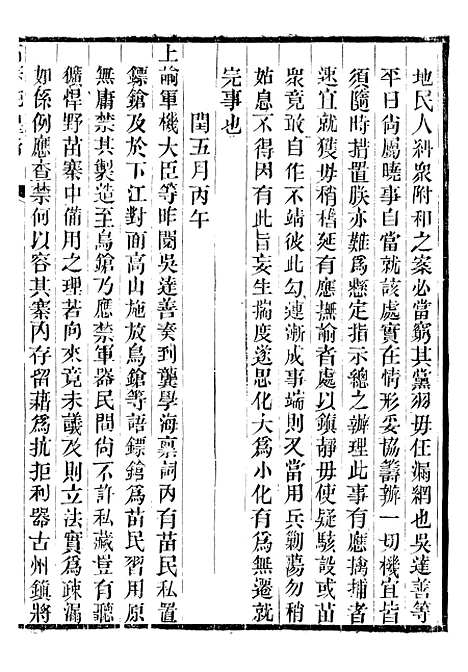 地民人糾衆附和之案必當窮其黨羽毋任漏網也吳達善等
平日尚屬曉事自當就該處實在情形妥協籌辦一切機宜皆
須隨時措置朕亦難爲懸定指示總之辦理此事有應擒捕者
速宜就獲毋稍稽延有應撫諭者處以鎮靜毋使疑駭設或苗
衆竟敢作不靖彼此勾連漸成事端則又當用兵剿蕩勿稍
姑息不得因有此旨妄生揣度遂思化大爲小化有爲無遷就
完事也
閏五月丙午
上諭軍機大臣等昨閱吳達善奏到龔學海稟詞內有苗民私置
鏢鎗及於下江對面高山施放鳥鎗等語鏢鎗爲苗民習用原
無庸禁其製造至鳥鎗乃應禁軍器民間尚不許私藏豈有
獷悍野苗寨中備用之理若向來竟未議及則立法實爲疎漏
如係例應查禁何以容其寨內存留藉爲抗拒利器古州鎮將